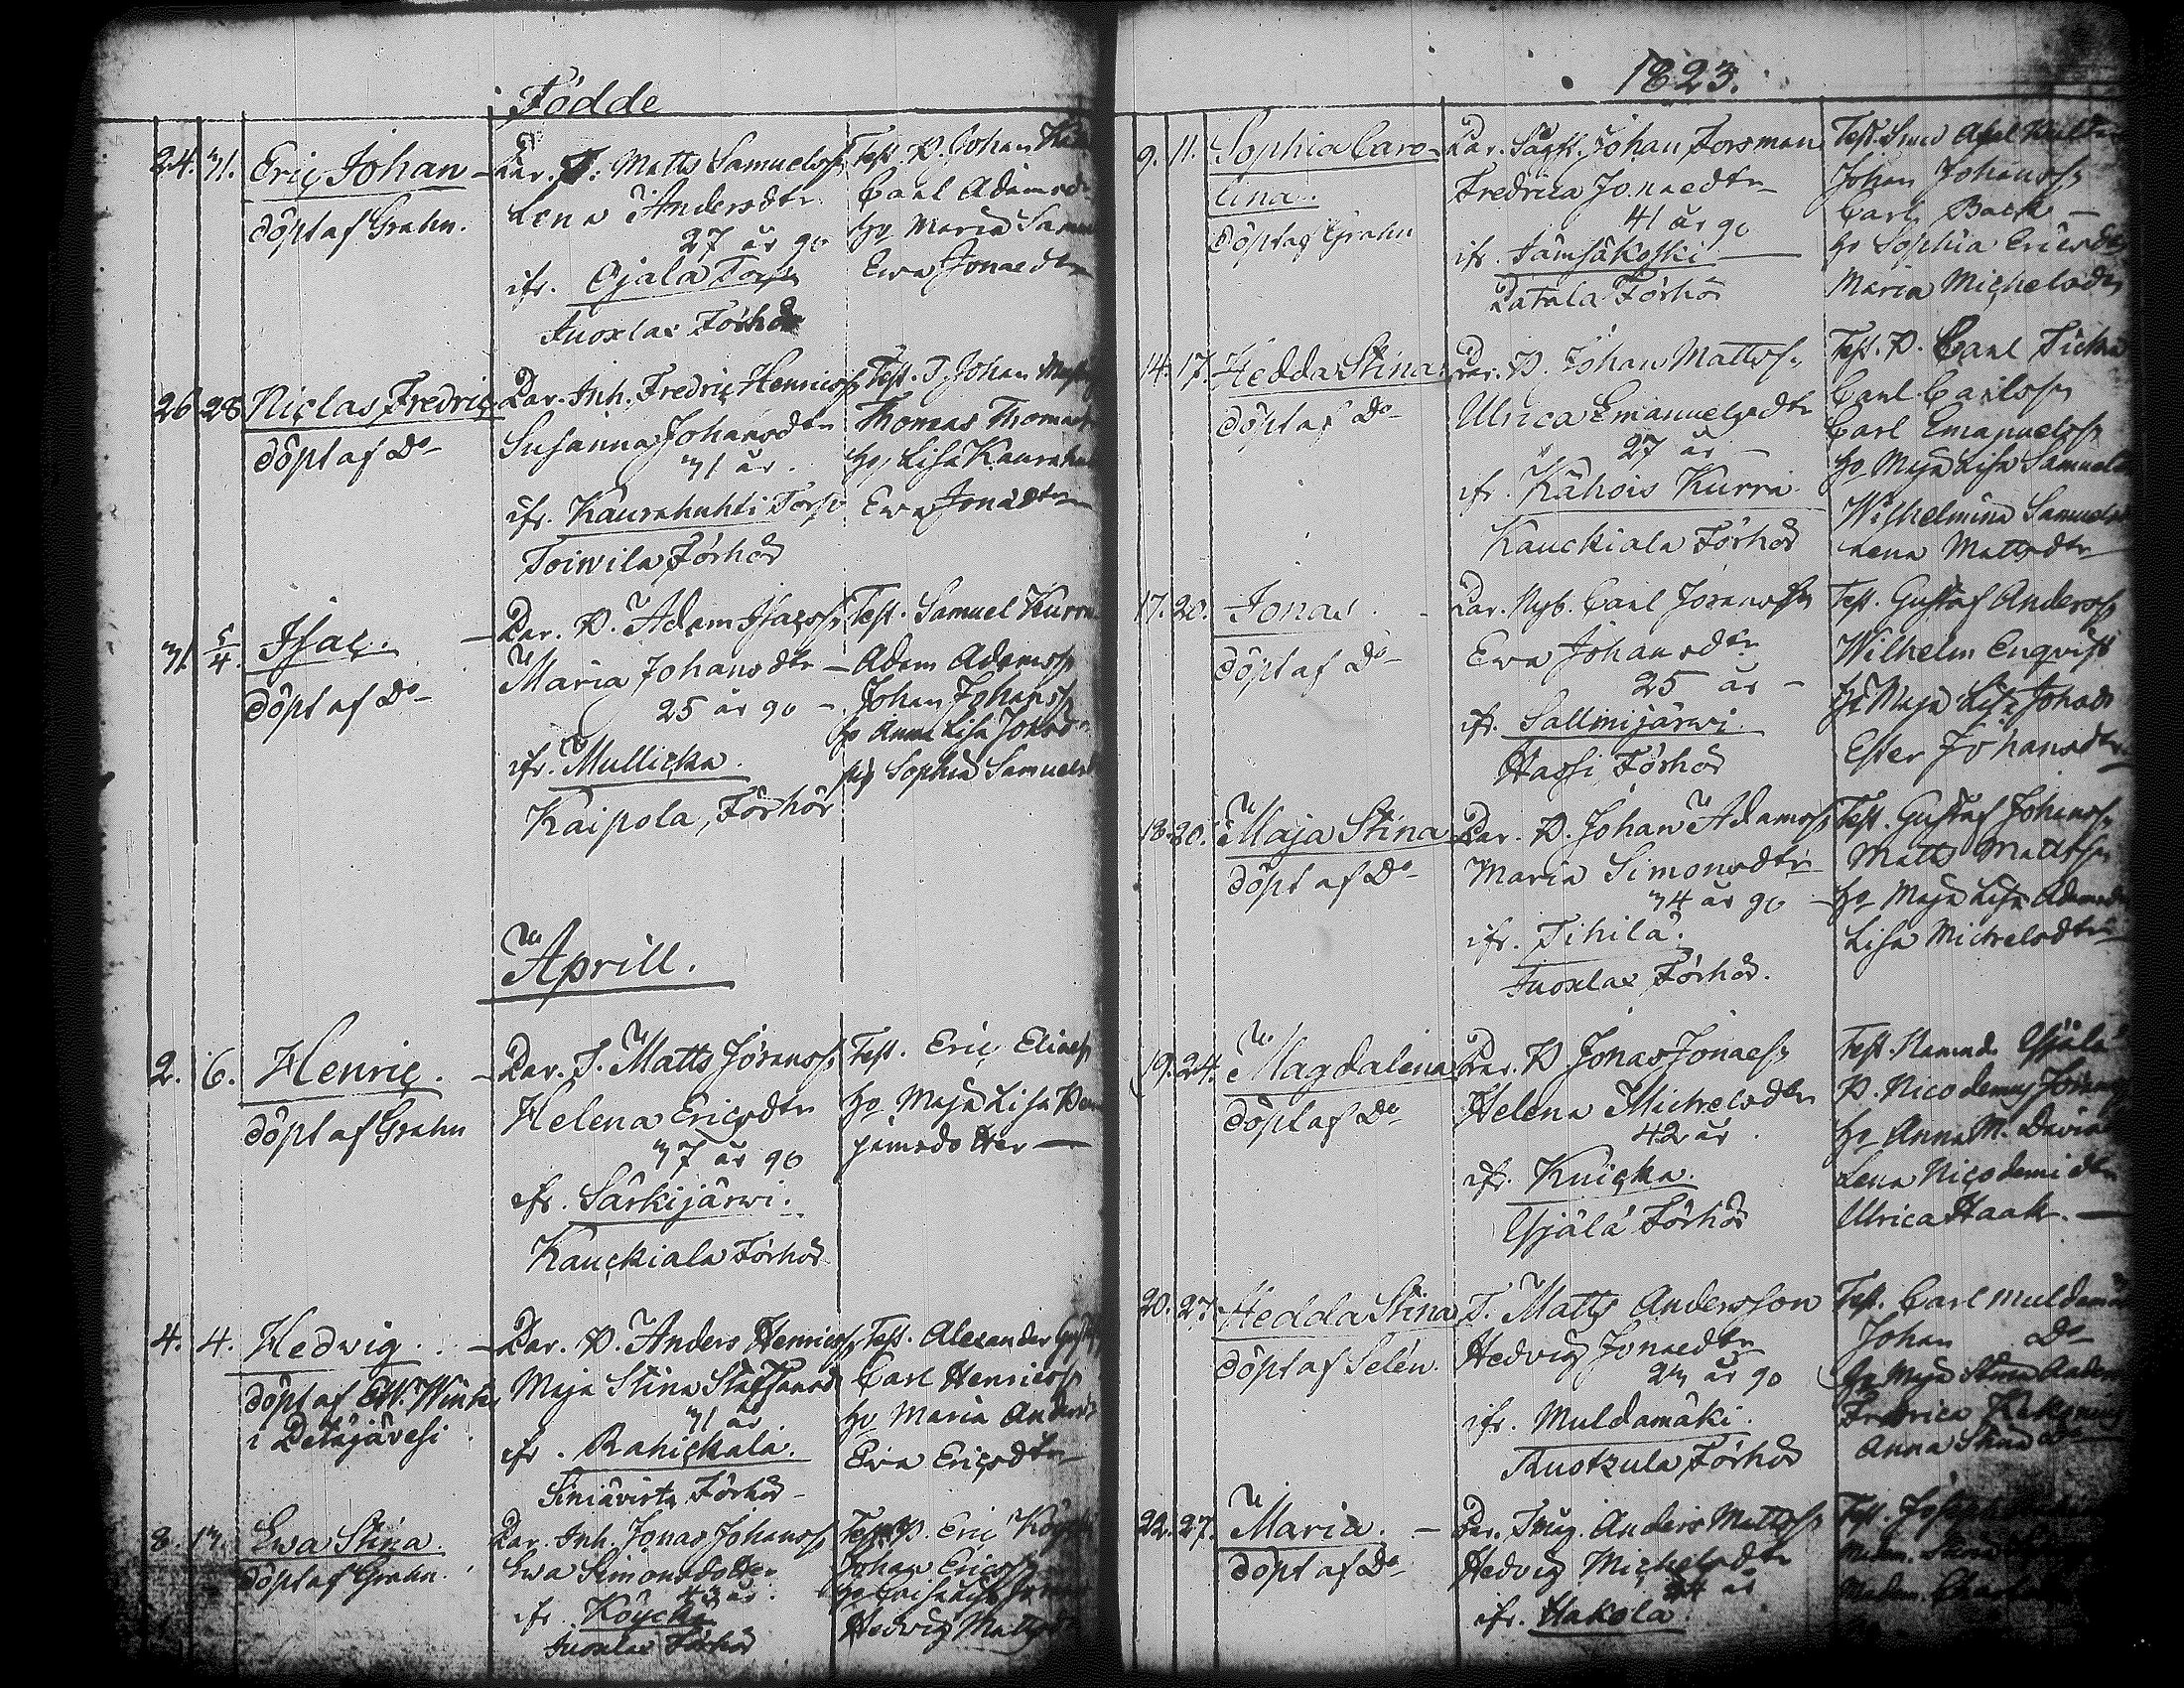 Födde
24. 31. Eric Johan
döpt af Grahn.
Par. T. Matts Samuelss.
Lena Andersdtr
27 år go
ifr. Ojala Torp
Juoxlax Förhör
Test. P. Johan
Carl Adamsd
ho Maria Sam
Ewa Jonaedtr
26 28 Niclas Fredric
döpt af Do
Par. Inh. Fredric Henricss.
Susanna Johansdtr
31 år.
ifr. Kaurahuhti Torp
Toiwila Förhör
Test. T. Johan
Thomas Thomas
ho Lisa Kaurahu
Ewa Jonaedtr
31. 5/4. Isac.
döpt af Do
Par. P. Adam Isacss.
Maria Johansdtr
25 år go
ifr. Mullicka.
Kaipola, Förhör
Test. Samuel Kurra
Adam Adamss.
Johan Johanss.
ho Anna Lisa Johsd
pig Sophia Samuelsd
Aprill.
2. 6. Henric.
döpt af Grahn
Par. T. Matts Jöranss.
Helena Ericsdtr
37 år go
ifr. Särkijärwi.
Kauckiala Förhör
Test. Eric Eliaes
ho Maja Lisa Ben
jamsdotter
4. 4. Hedwig.
döpt af
i Petäjävesi
Par. P. Anders Henricss.
Maja Stina Staffansd
31 år
ifr. Rahickala.
Siniävirta Förhör
Test. Alexander
Carl Henricss.
ho Maria Andersd
Ewa Ericsdtr
8. 13. Ewa Stina.
döpt af Grahn.
Par. Inh. Jonas Johanss.
Ewa Simonsdotter
43 år.
ifr. Köycka
Juoxlax Förhör
Test. P. Eric
Johan Ericss.
Hedwig Matts
1823.
9. 11. Sophia Caro-
lina.
döpt af Grahn
Par. Johan Forsman
Fredrica Jonaedtr
41 år go
ifr. Jämsäkoski
Patala Förhör
Test. Axel
Johan Johanss.
Carl Back
ho Sophia Ericsdtr
Maria Michelsdtr
14. 17. Hedda Stina
döpt af Do
Par. P. Johan Mattss.
Ulrica Emanuelsdtr
27 år
ifr. Kähois Kurra.
Kauckiala Förhör
Test. P. Carl
Carl Carlss.
Carl Emanuelss.
ho Maja Lisa Samuelsd
Wilhelmina Samuels
Lena Mattsdtr
17. 20. Jonas.
döpt af Do
Par. Nyb. Carl Jöranss.
Ewa Johansdtr
25 år
ifr. Sallmijärwi.
Hassi Förhör
Test. Gustaf Anderss.
Wilhelm Enqvist
ho Maja Lisa Johsdr
Ester Johansdtr
18. 20. Maja Stina
döpt af Do
Par. P. Johan Adamss.
Maria Simonsdtr
34 år go
ifr. Tihilä.
Juoxlax Förhör.
Test. Gustaf Johanss.
Matts Mattss.
ho Maja Lisa Adamsd
Lisa Michelsdtr
19. 24. Magdalena
döpt af Do
Par. P. Jonas Jonaes.
Helena Michelsdtr
42 år.
ifr. Knicka.
Yijälä Förhör
Test. Nämnd. Yijälä
P. Nicodemus Jöranss
ho Anna M. Davids
Lena Nicodemidtr
Ulrica Haak.
20. 27. Hedda Stina
döpt af Selén
T. Matts Andersson
Hedvig Jonaedtr
23 år go
ifr. Muldamäki.
Ruotzula Förhör
Test. Carl Muldamä
Johan Do
ho Maja Stina Anders
Fredrica
Anna Stina Do
22. 27. Maria.
döpt af Do
Par. Anders Mattss.
Hedvig Michelsdtr
34 år
ifr. Hakola.
Test.
Madam.